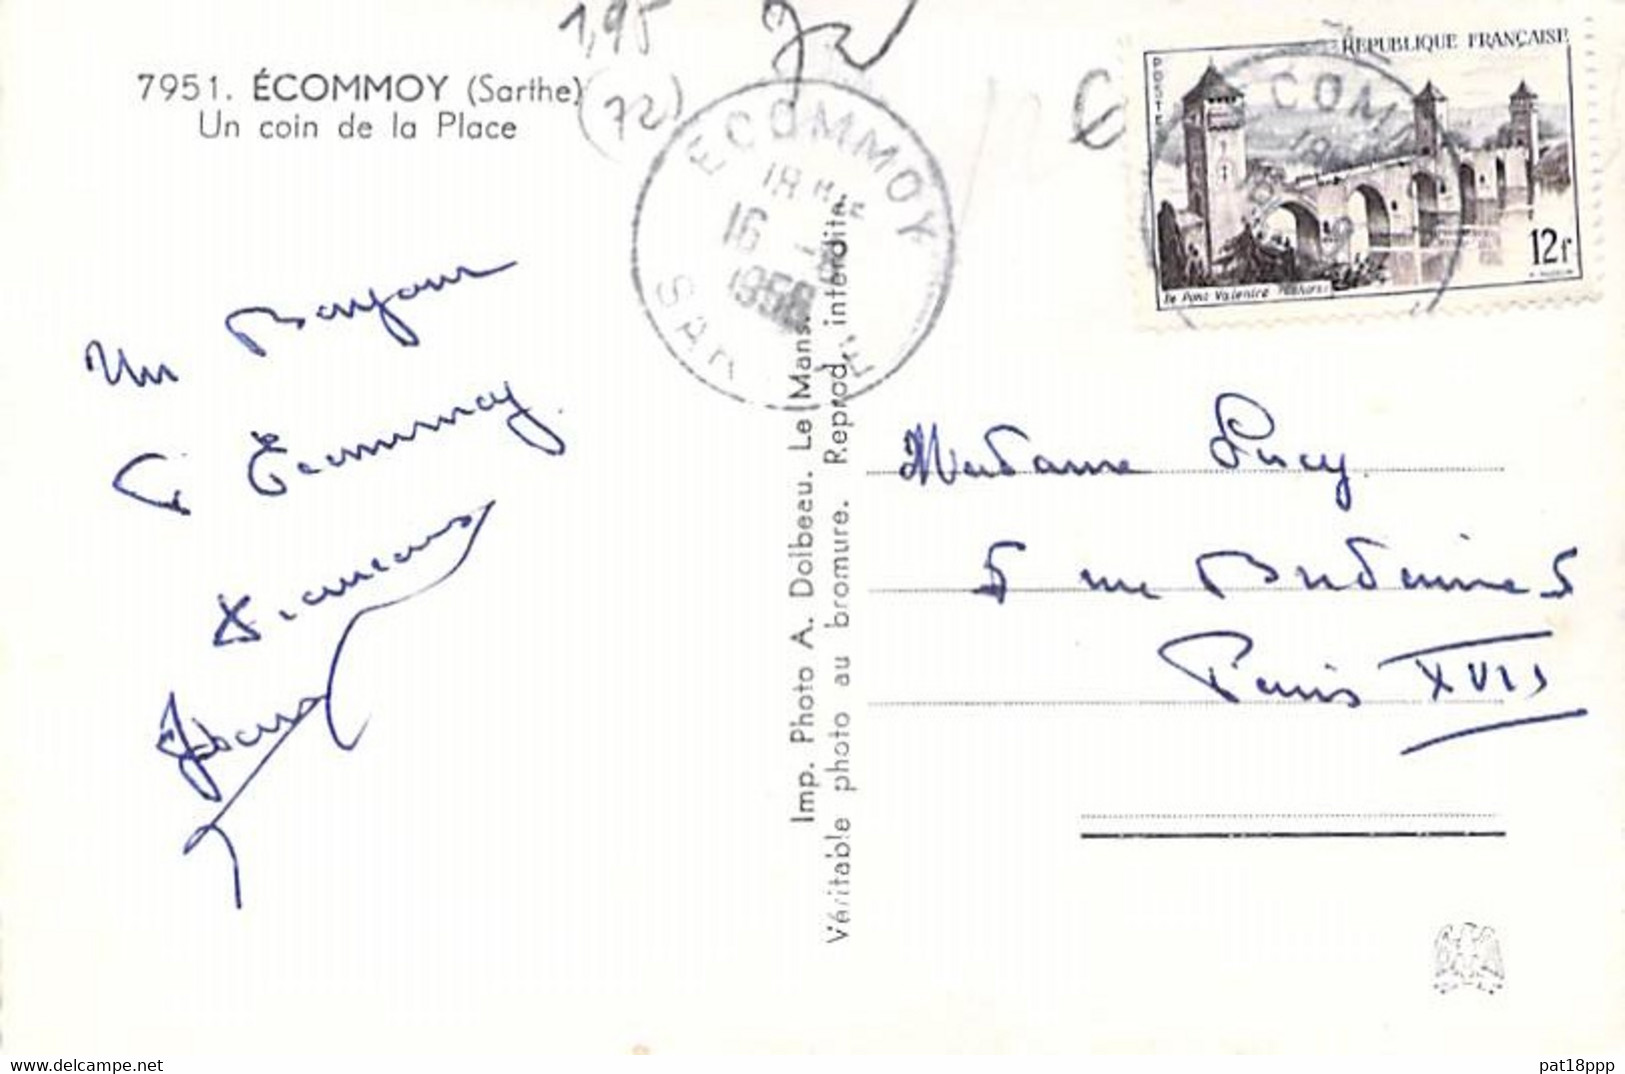 1,95
(72)
7951. ÉCOMMOY (Sarthe)
Un coin de la Place
ECOMMOY
18H
16
1958
SAR
RÉPUBLIQUE FRANÇAISE
POSTES
12f
Le Pont Valentré Cahors
Un Bonjour
d'Ecommoy.
Imp. Photo A. Dolbeau. Le Mans.
Véritable photo au bromure. Reprod. interdite.
Madame Lucy
5 rue
Paris XVII
pat18ppp